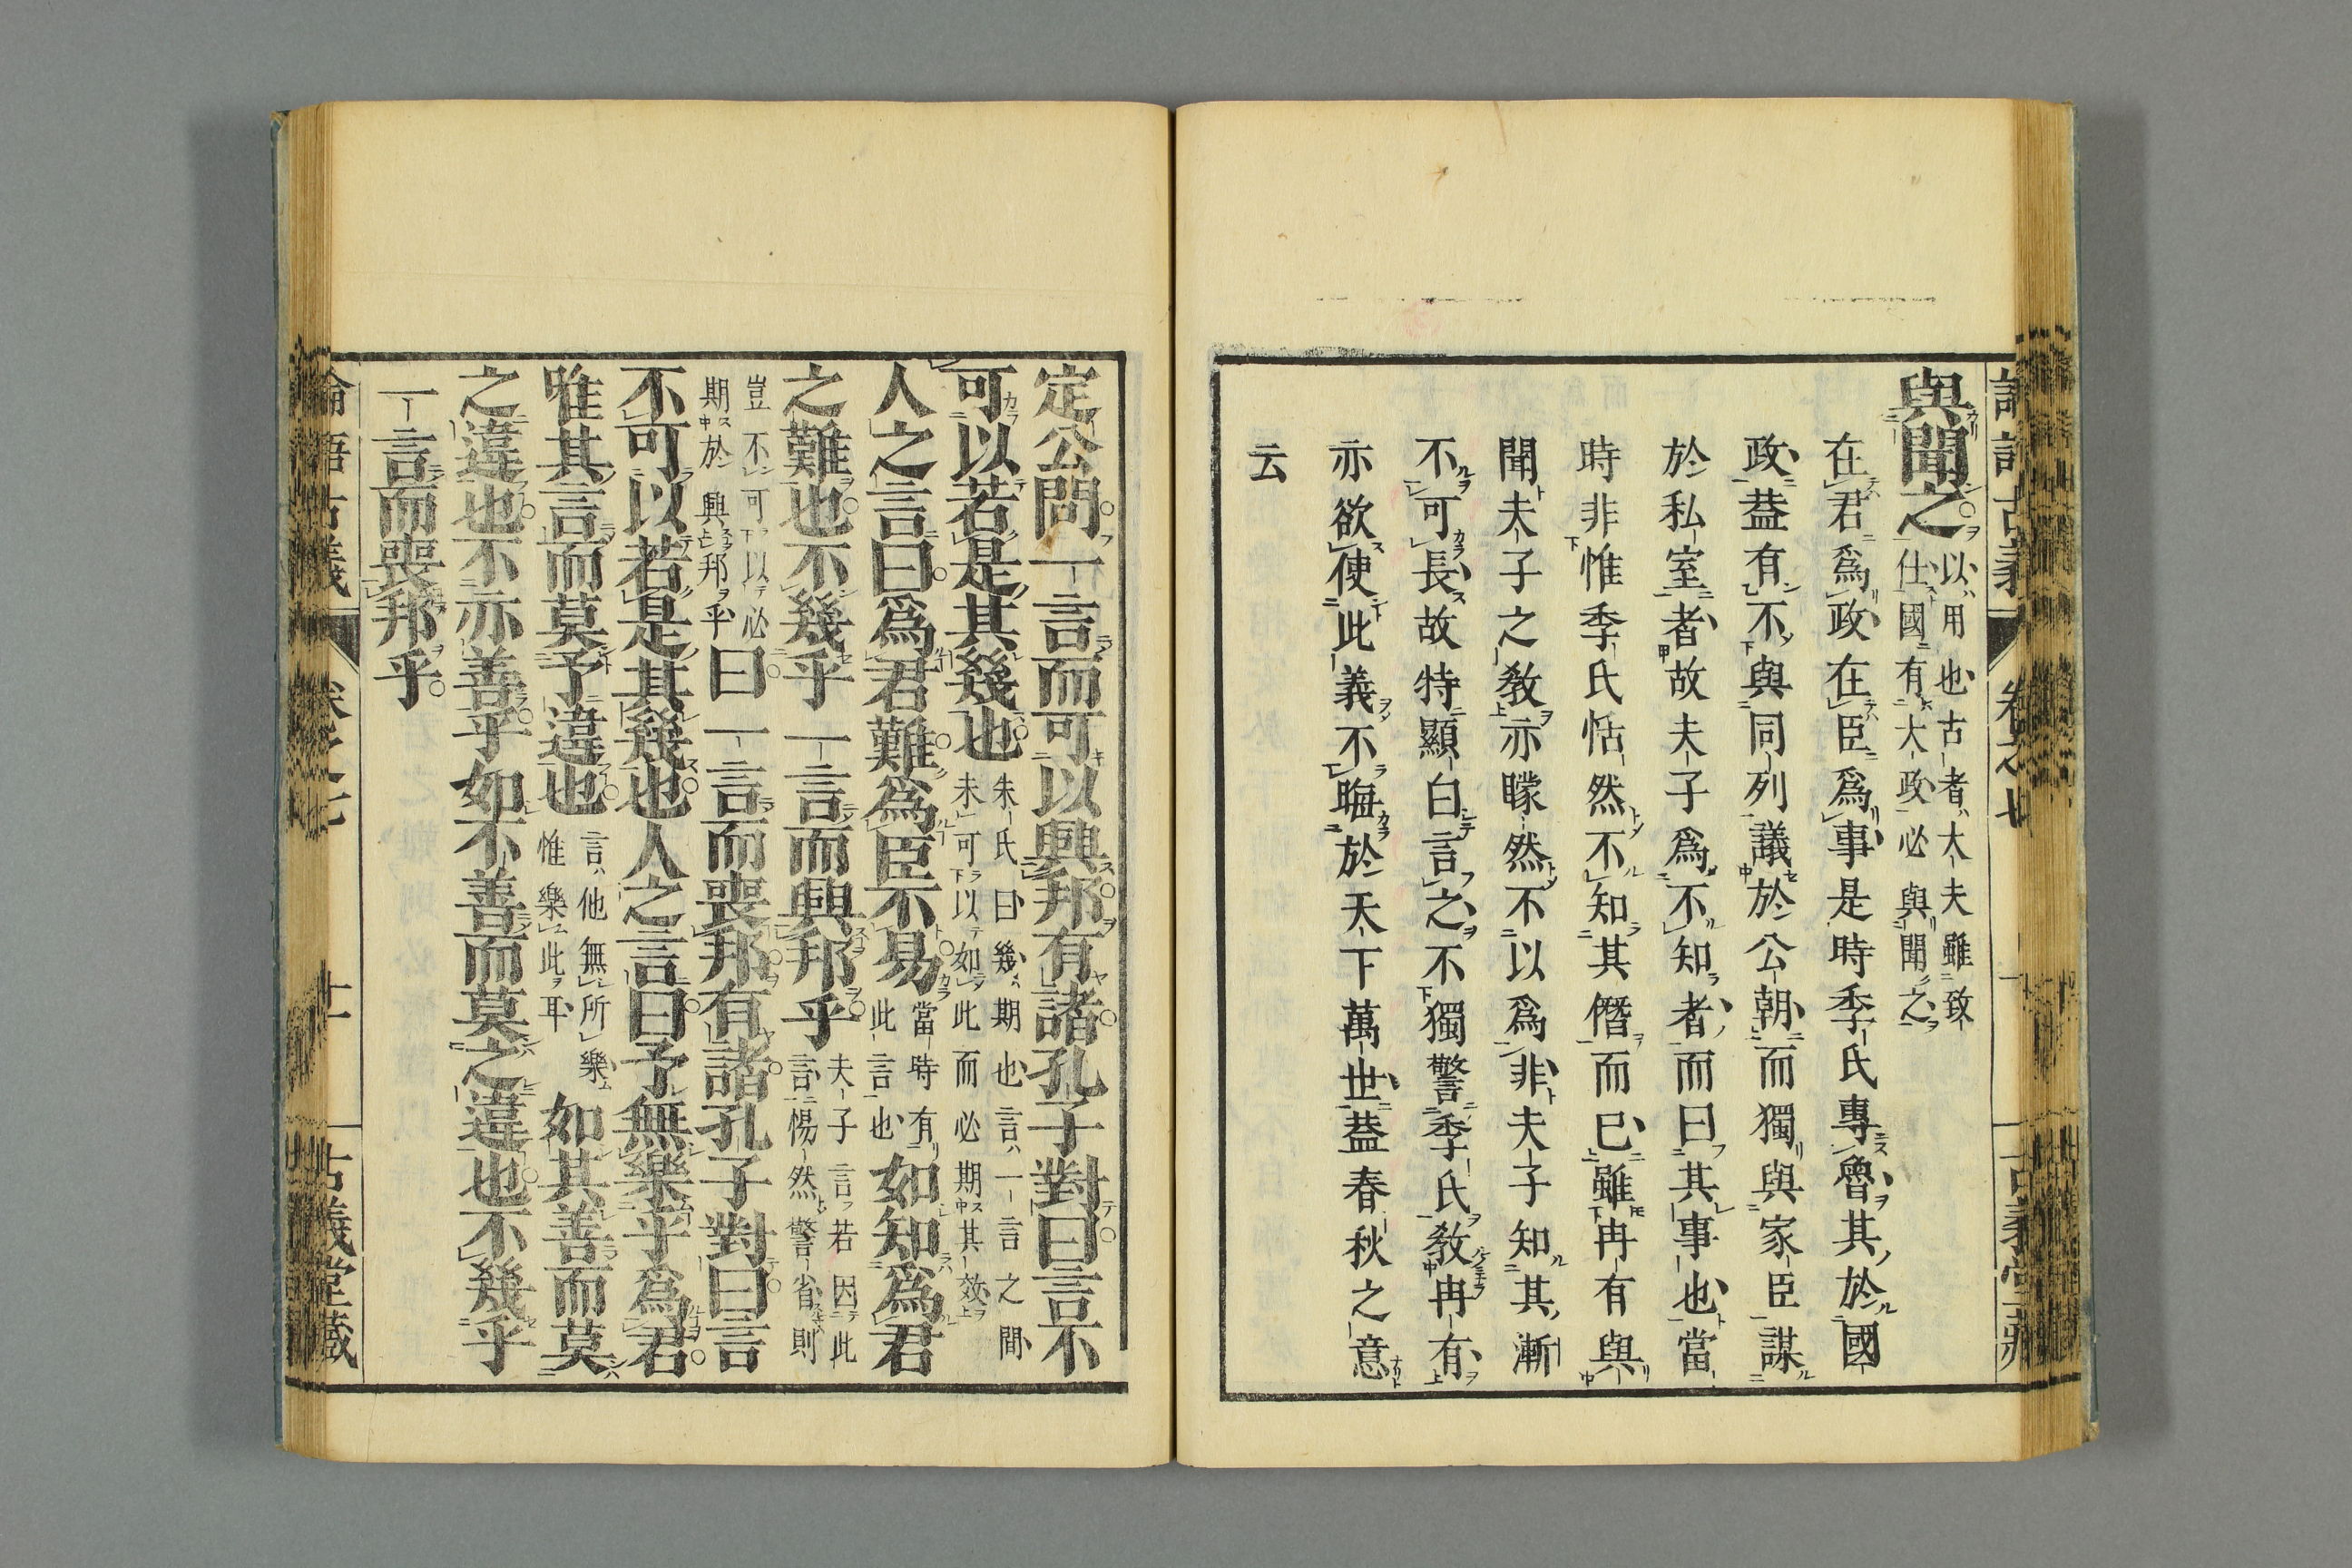 與聞之 以用也古者大夫雖致
仕國有大政必與聞之
在君爲政在臣爲事是時季氏專魯其於國
政葢有不與同列議於公朝而獨與家臣謀
於私室者故夫子爲不知者而曰其事也當
時非惟季氏恬然不知其僭而已雖冉有與
聞夫子之敎亦矇然不以爲非夫子知其漸
不可長故特顯白言之不獨警季氏敎冉有
亦欲使此義不晦於天下萬世葢春秋之意
云
定公問一言而可以興邦有諸孔子對曰言不
可以若是其幾也 朱氏曰幾期也言一言之間
未可以如此而必期其效
人之言曰爲君難爲臣不易 當時有
此言也 如知爲君
之難也不幾乎一言而興邦乎 夫子言若因此
言惕然警省則
豈不可以必
期於興邦乎 曰一言而喪邦有諸孔子對曰言
不可以若是其幾也人之言曰予無樂乎爲君
唯其言而莫予違也 言他無所樂
惟樂此耳 如其善而莫
之違也不亦善乎如不善而莫之違也不幾乎
一言而喪邦乎
論語古義 卷之七 十一 古義堂藏